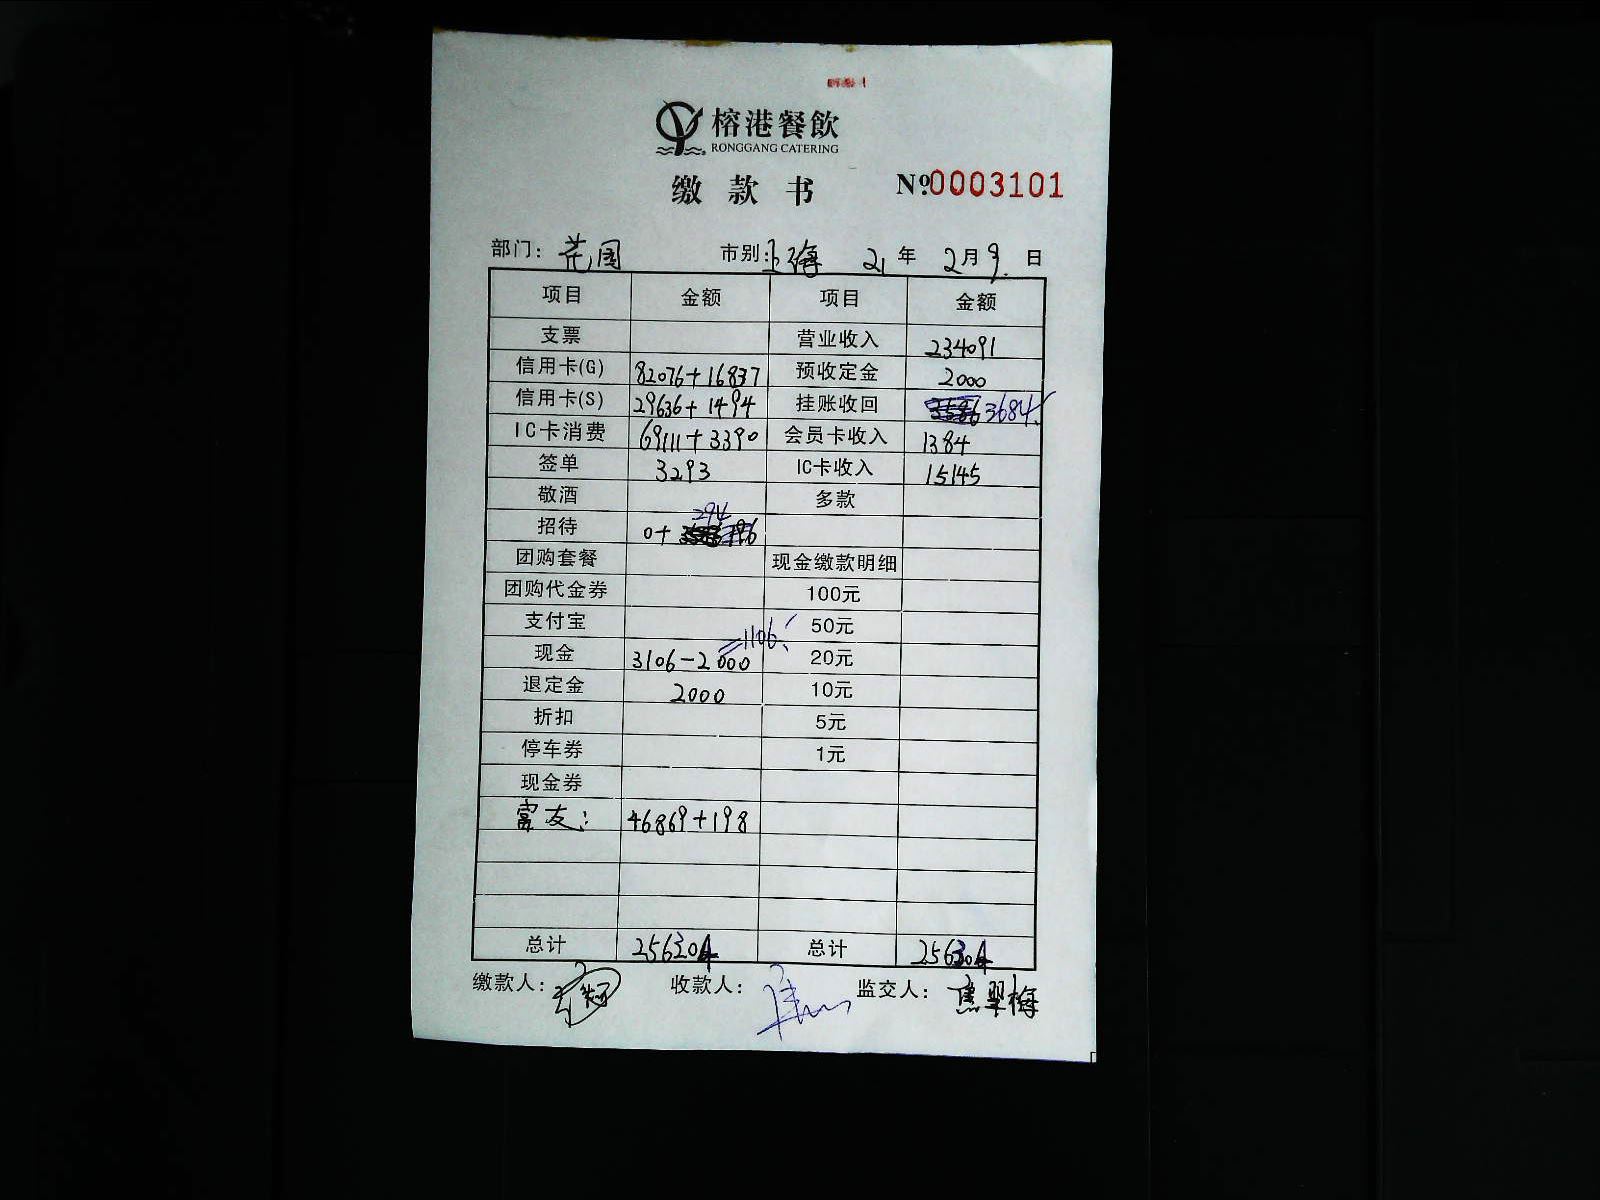 榕港餐飲
RONGGANG CATERING
缴款书
№0003101
部门: 花园 市别: 上海 21年2月9日
项目 金额 项目 金额
支票 营业收入 234091
信用卡(G) 82076+16837 预收定金 2000
信用卡(S) 29636+1494 挂账收回 3684
IC卡消费 69111+3390 会员卡收入 1384
签单 3293 IC卡收入 15145
敬酒 多款
294
招待 0+
团购套餐 现金缴款明细
团购代金券 100元
支付宝 50元
=1106
现金 3106-2000 20元
退定金 2000 10元
折扣 5元
停车券 1元
现金券
富友: 46869+198
总计 256304 总计 256304
缴款人: 收款人: 监交人: 焦翠梅